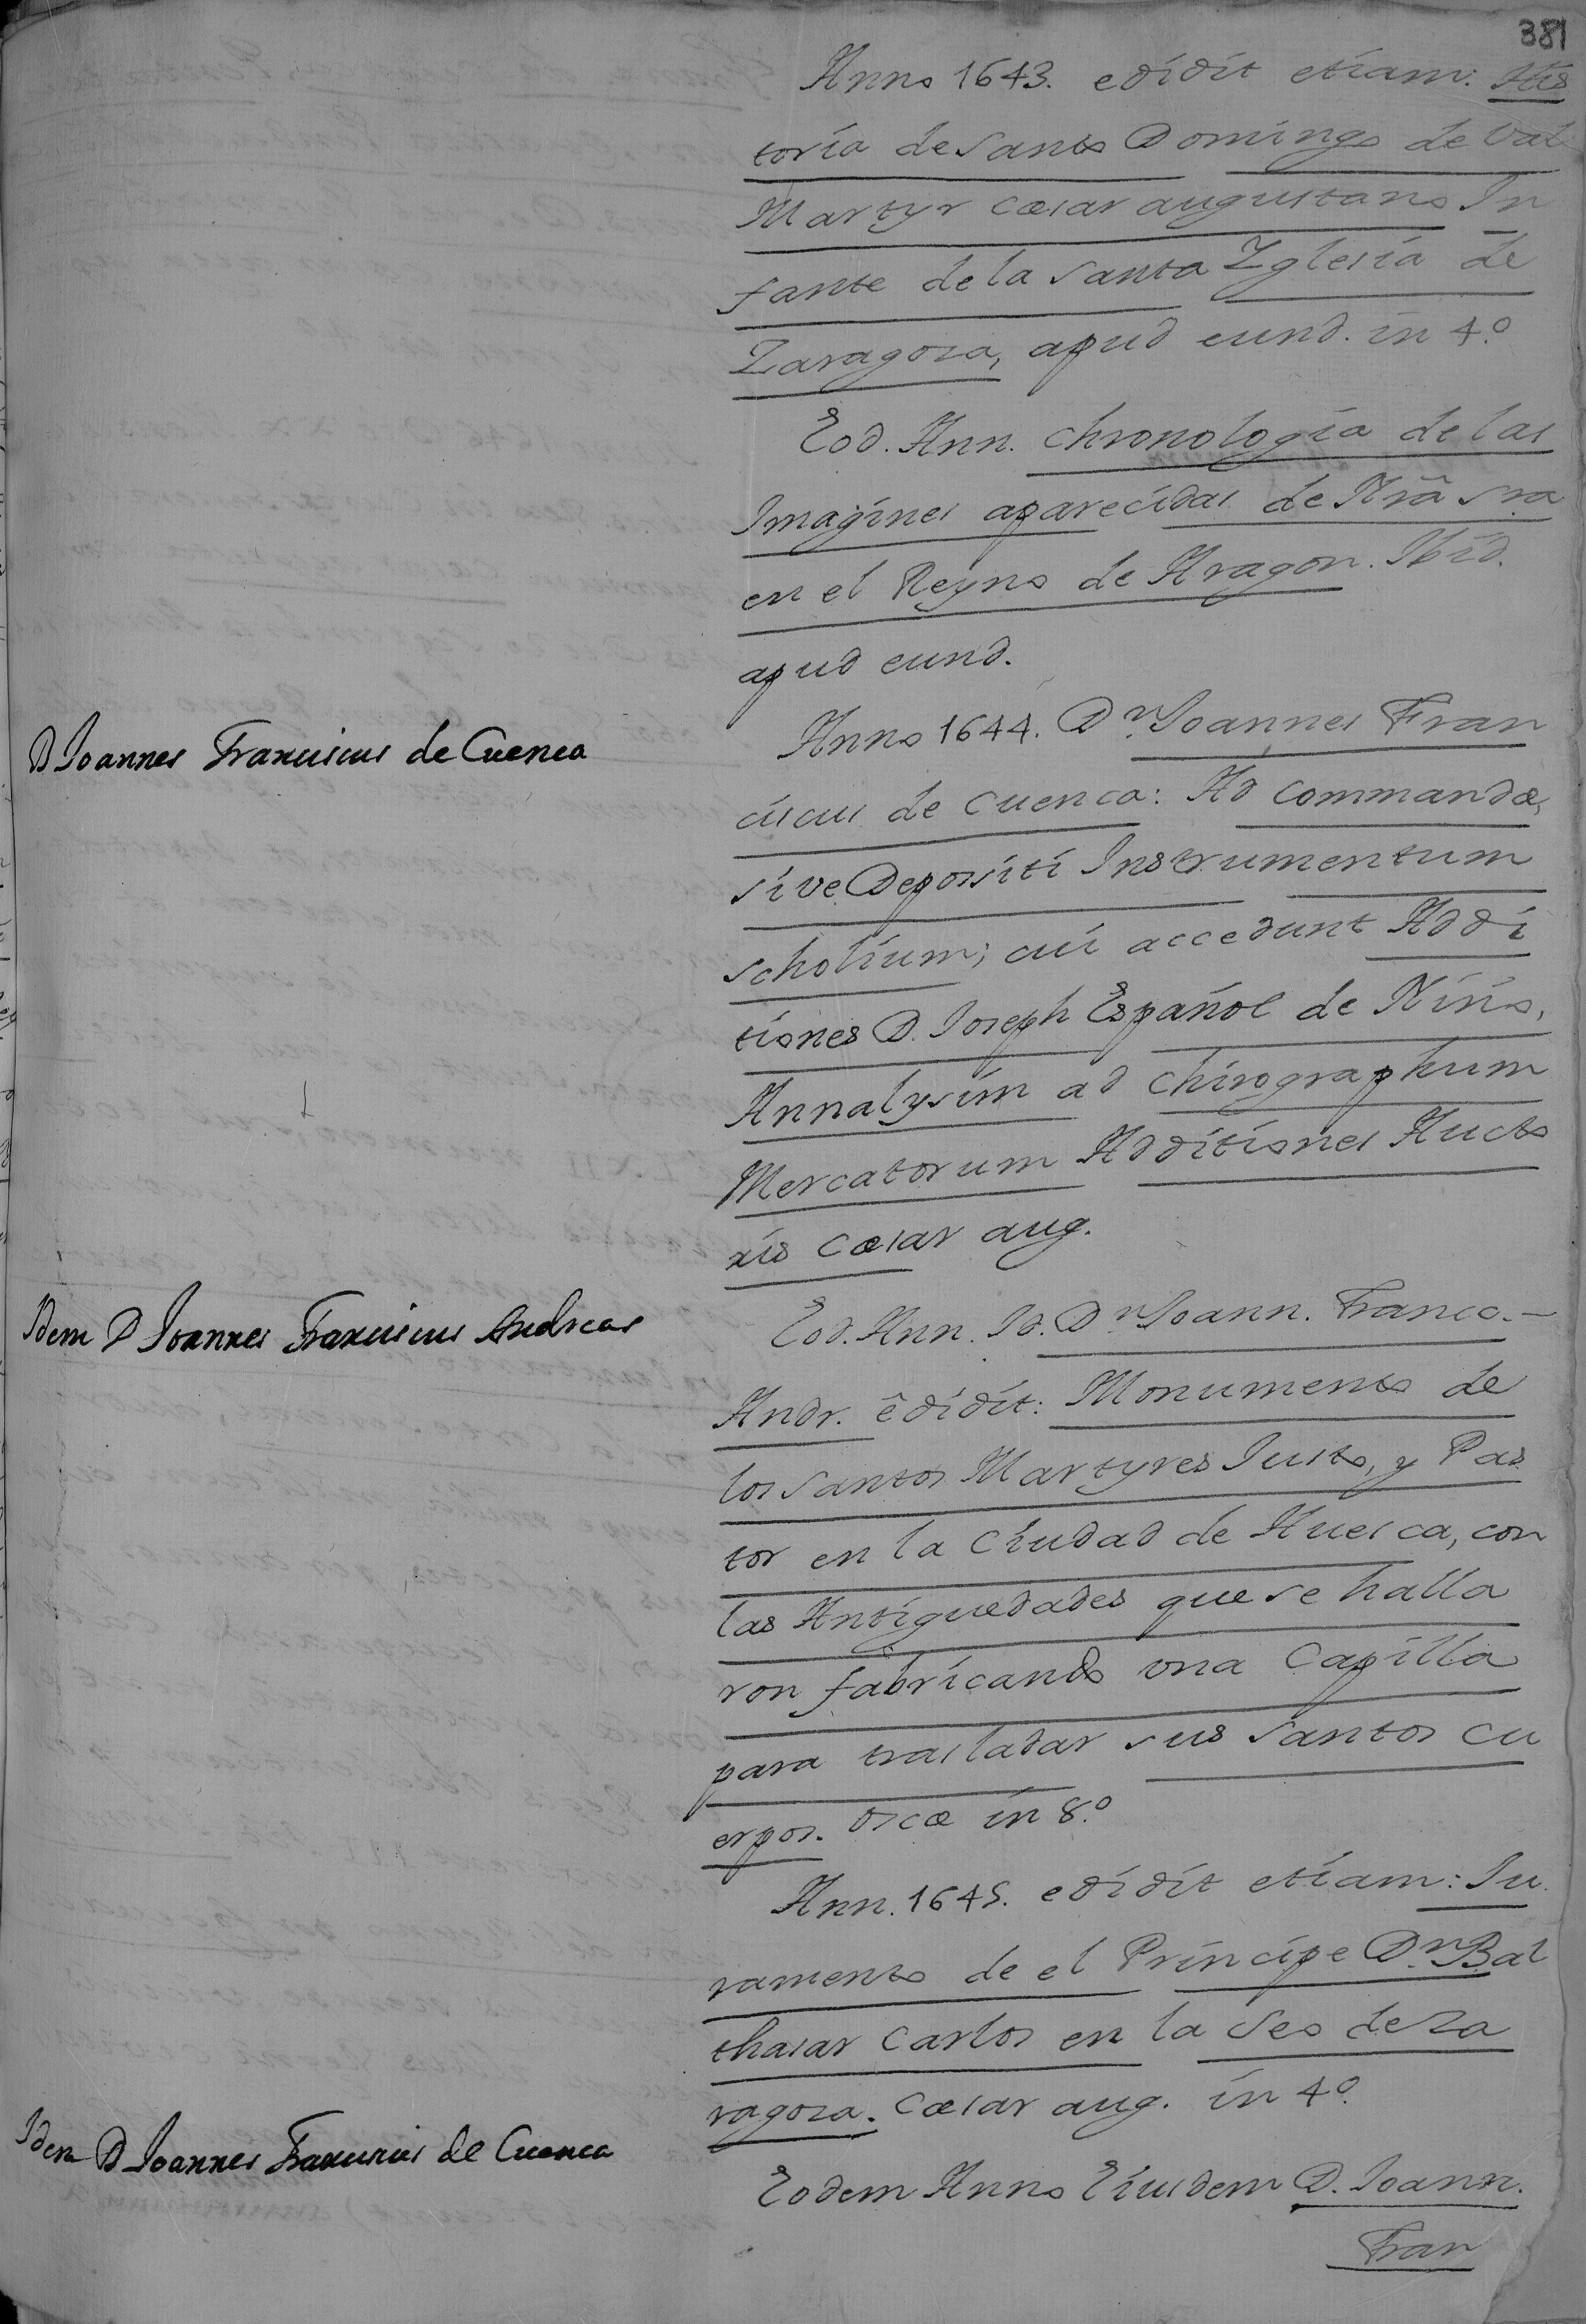 381
Anno 1643. edidit etiam: His
toria de Santo Domingo de Val
Martyr Cæsar augustano In
fante de la Santa Yglesia de
Zaragoza, apud eund. in 4.º
Eod. Ann. Chronologia de las
Imagines aparecidas de Nrâ Sra
en el Reyno de Aragon. Ibid.
apud eund.
D Joannes Franciscus de Cuenca
Anno 1644. Dn. Joannes Fran
ciscus de Cuenca: Ad Commandæ,
sive Depositi Instrumentum
scholium; cui accedunt Addi
tiones D. Joseph Español de Niño,
Annalysim ad Chirographum
Mercatorum Additiones Aucto
ris Cæsar aug.
Idem D Joannes Franciscus Andreas
Eod. Ann. Id. Dn. Joann. Franco.-
Andr. êdidit: Monumento de
los Santos Martyres Justo, y Pas
tor en la Ciudad de Huesca, con
las Antiguedades que se halla
ron fabricando una Capilla
para trasladar sus Santos cu
erpos. Oscæ in 8.º
Ann. 1645. edidit etiam: Ju
ramento de el Principe Dn. Bal
thasar Carlos en la Seo de Za
ragoza. Cæsar aug. in 4.º
Idem D Joannes Franciscus de Cuenca
Eodem Anno Eiusdem D. Joann.
Fran